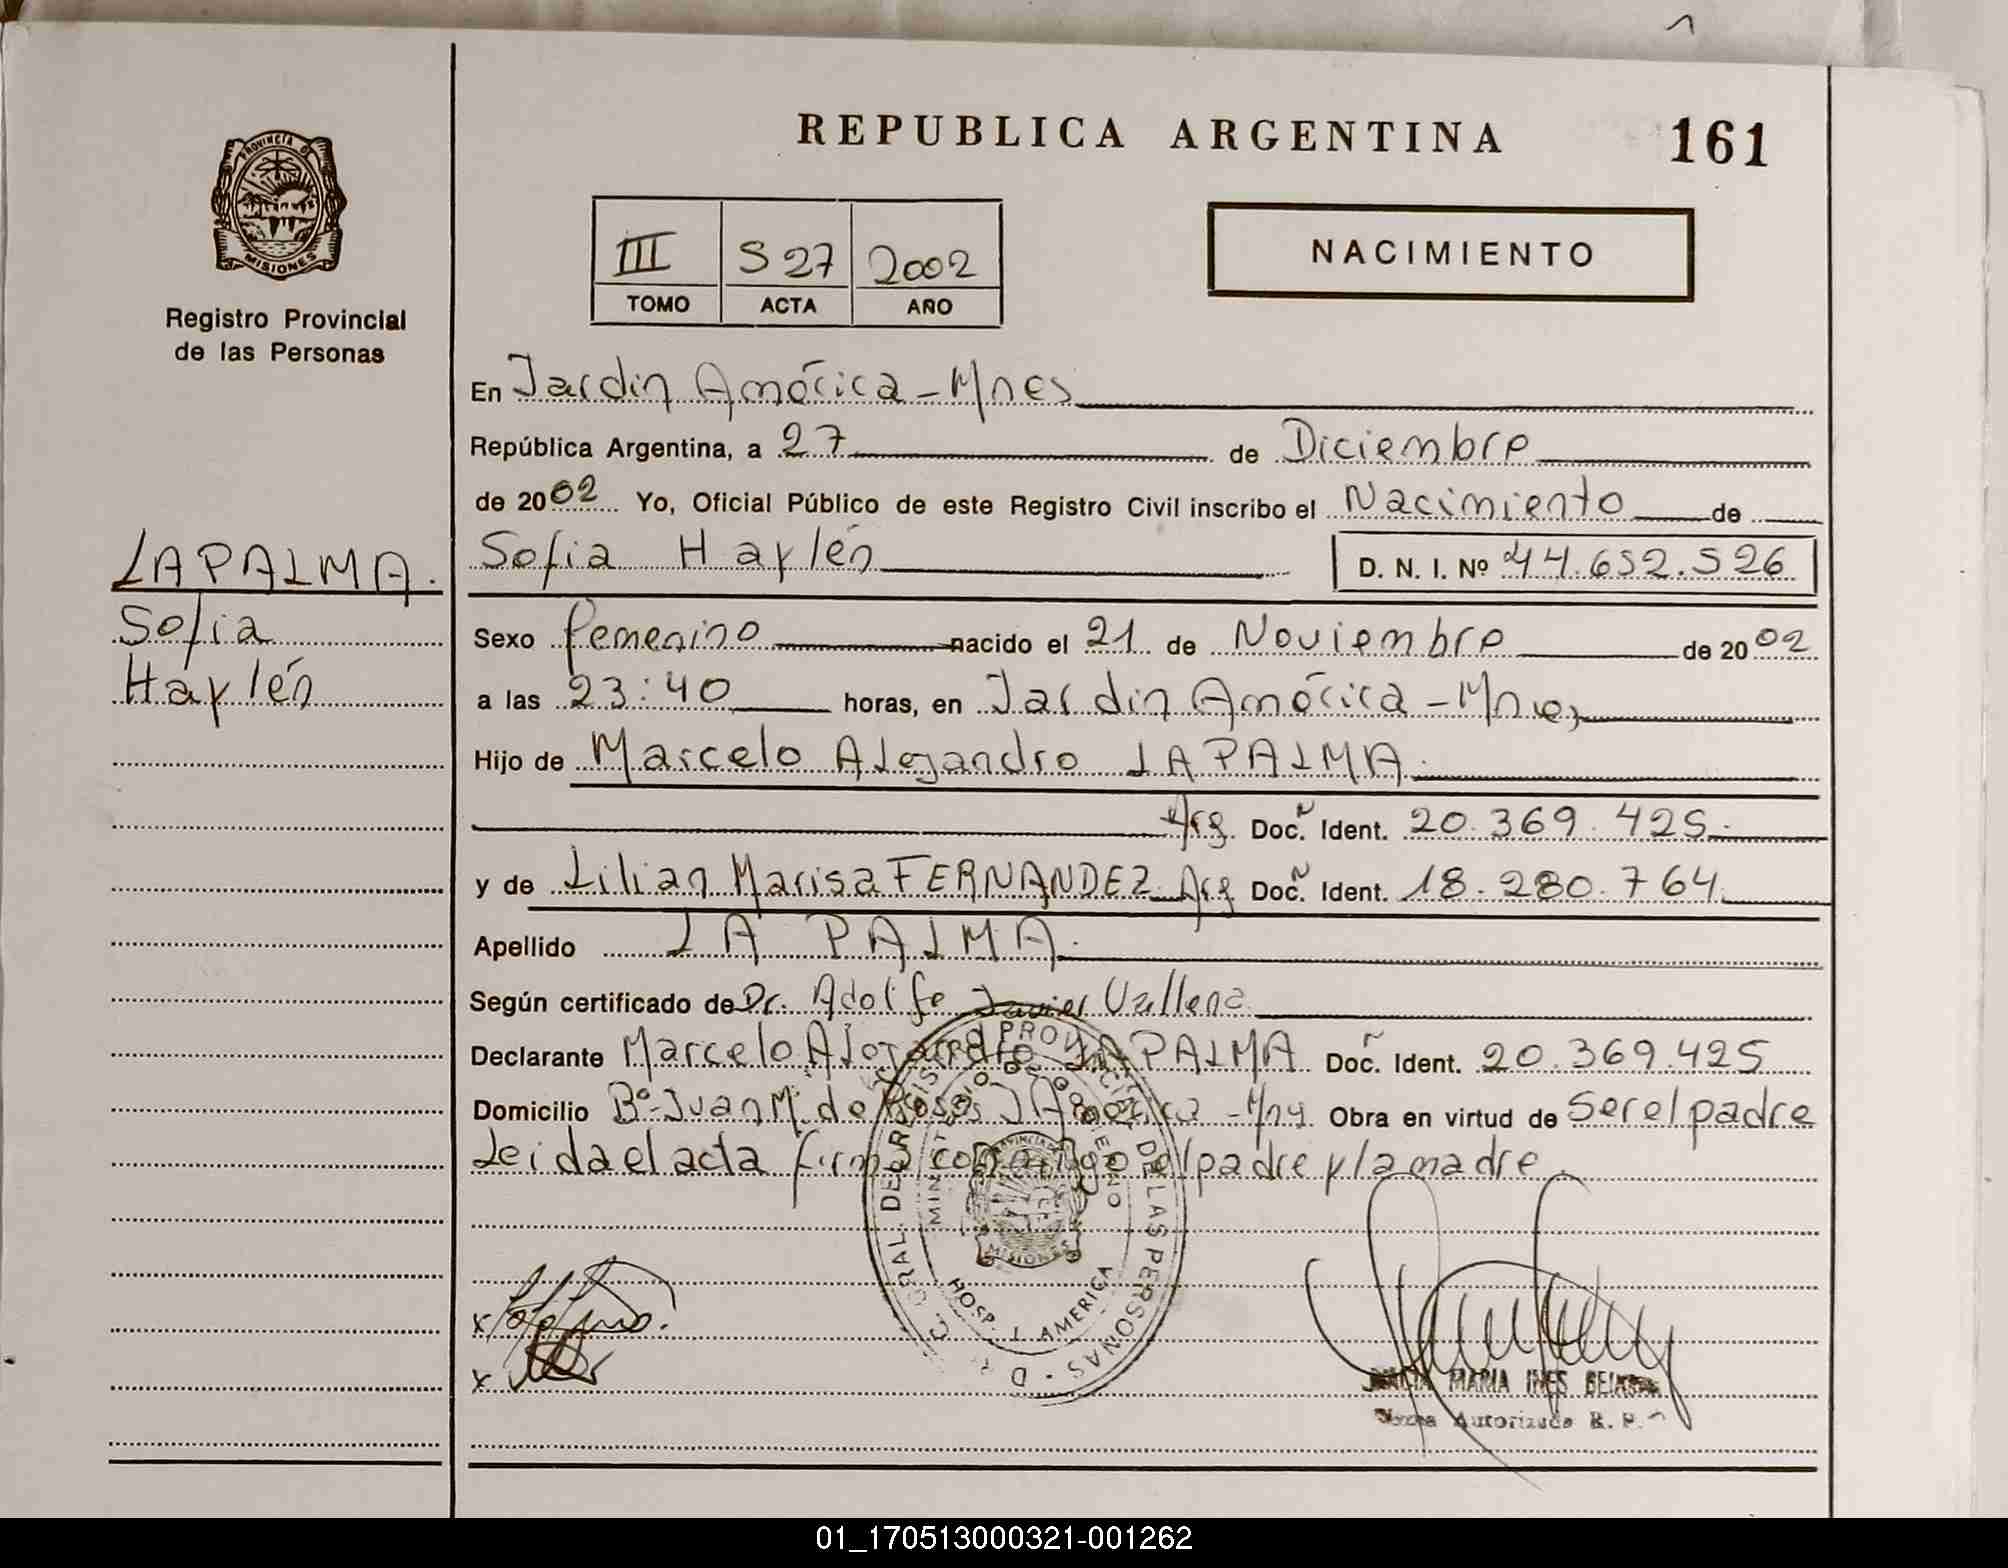 REPUBLICA ARGENTINA
161
PROVINCIA DE
MISIONES
Registro Provincial
de las Personas
III 527 2002
TOMO ACTA AÑO
NACIMIENTO
En Jardin América - Mnes
República Argentina, a 27 de Diciembre
de 2002 Yo, Oficial Público de este Registro Civil inscribo el Nacimiento de
Sofia Haylén D. N. I. Nº 44.652.526
LAPALMA.
Sofia
Haylén
Sexo femenino nacido el 21 de Noviembre de 2002
a las 23:40 horas, en Jardin América - Mnes
Hijo de Marcelo Alejandro LAPALMA.
Arg. Doc. Ident. 20.369.425
y de Lilian Marisa FERNANDEZ Arg Doc. Ident. 18.280.764
Apellido LA PALMA.
Según certificado de Dr. Adolfo Javier
Declarante Marcelo Alejandro LAPALMA Doc. Ident. 20.369.425
Domicilio Bº Juan M. de Rosas J. América - Mns Obra en virtud de Ser el padre
Leida el acta firma conmigo el padre y la madre.
REGISTRO PROVINCIAL DE LAS PERSONAS
MINISTERIO DE GOBIERNO
MISIONES
HOSP. J. AMERICA
MARIA INES
Firma Autorizada R. P.
01_170513000321-001262